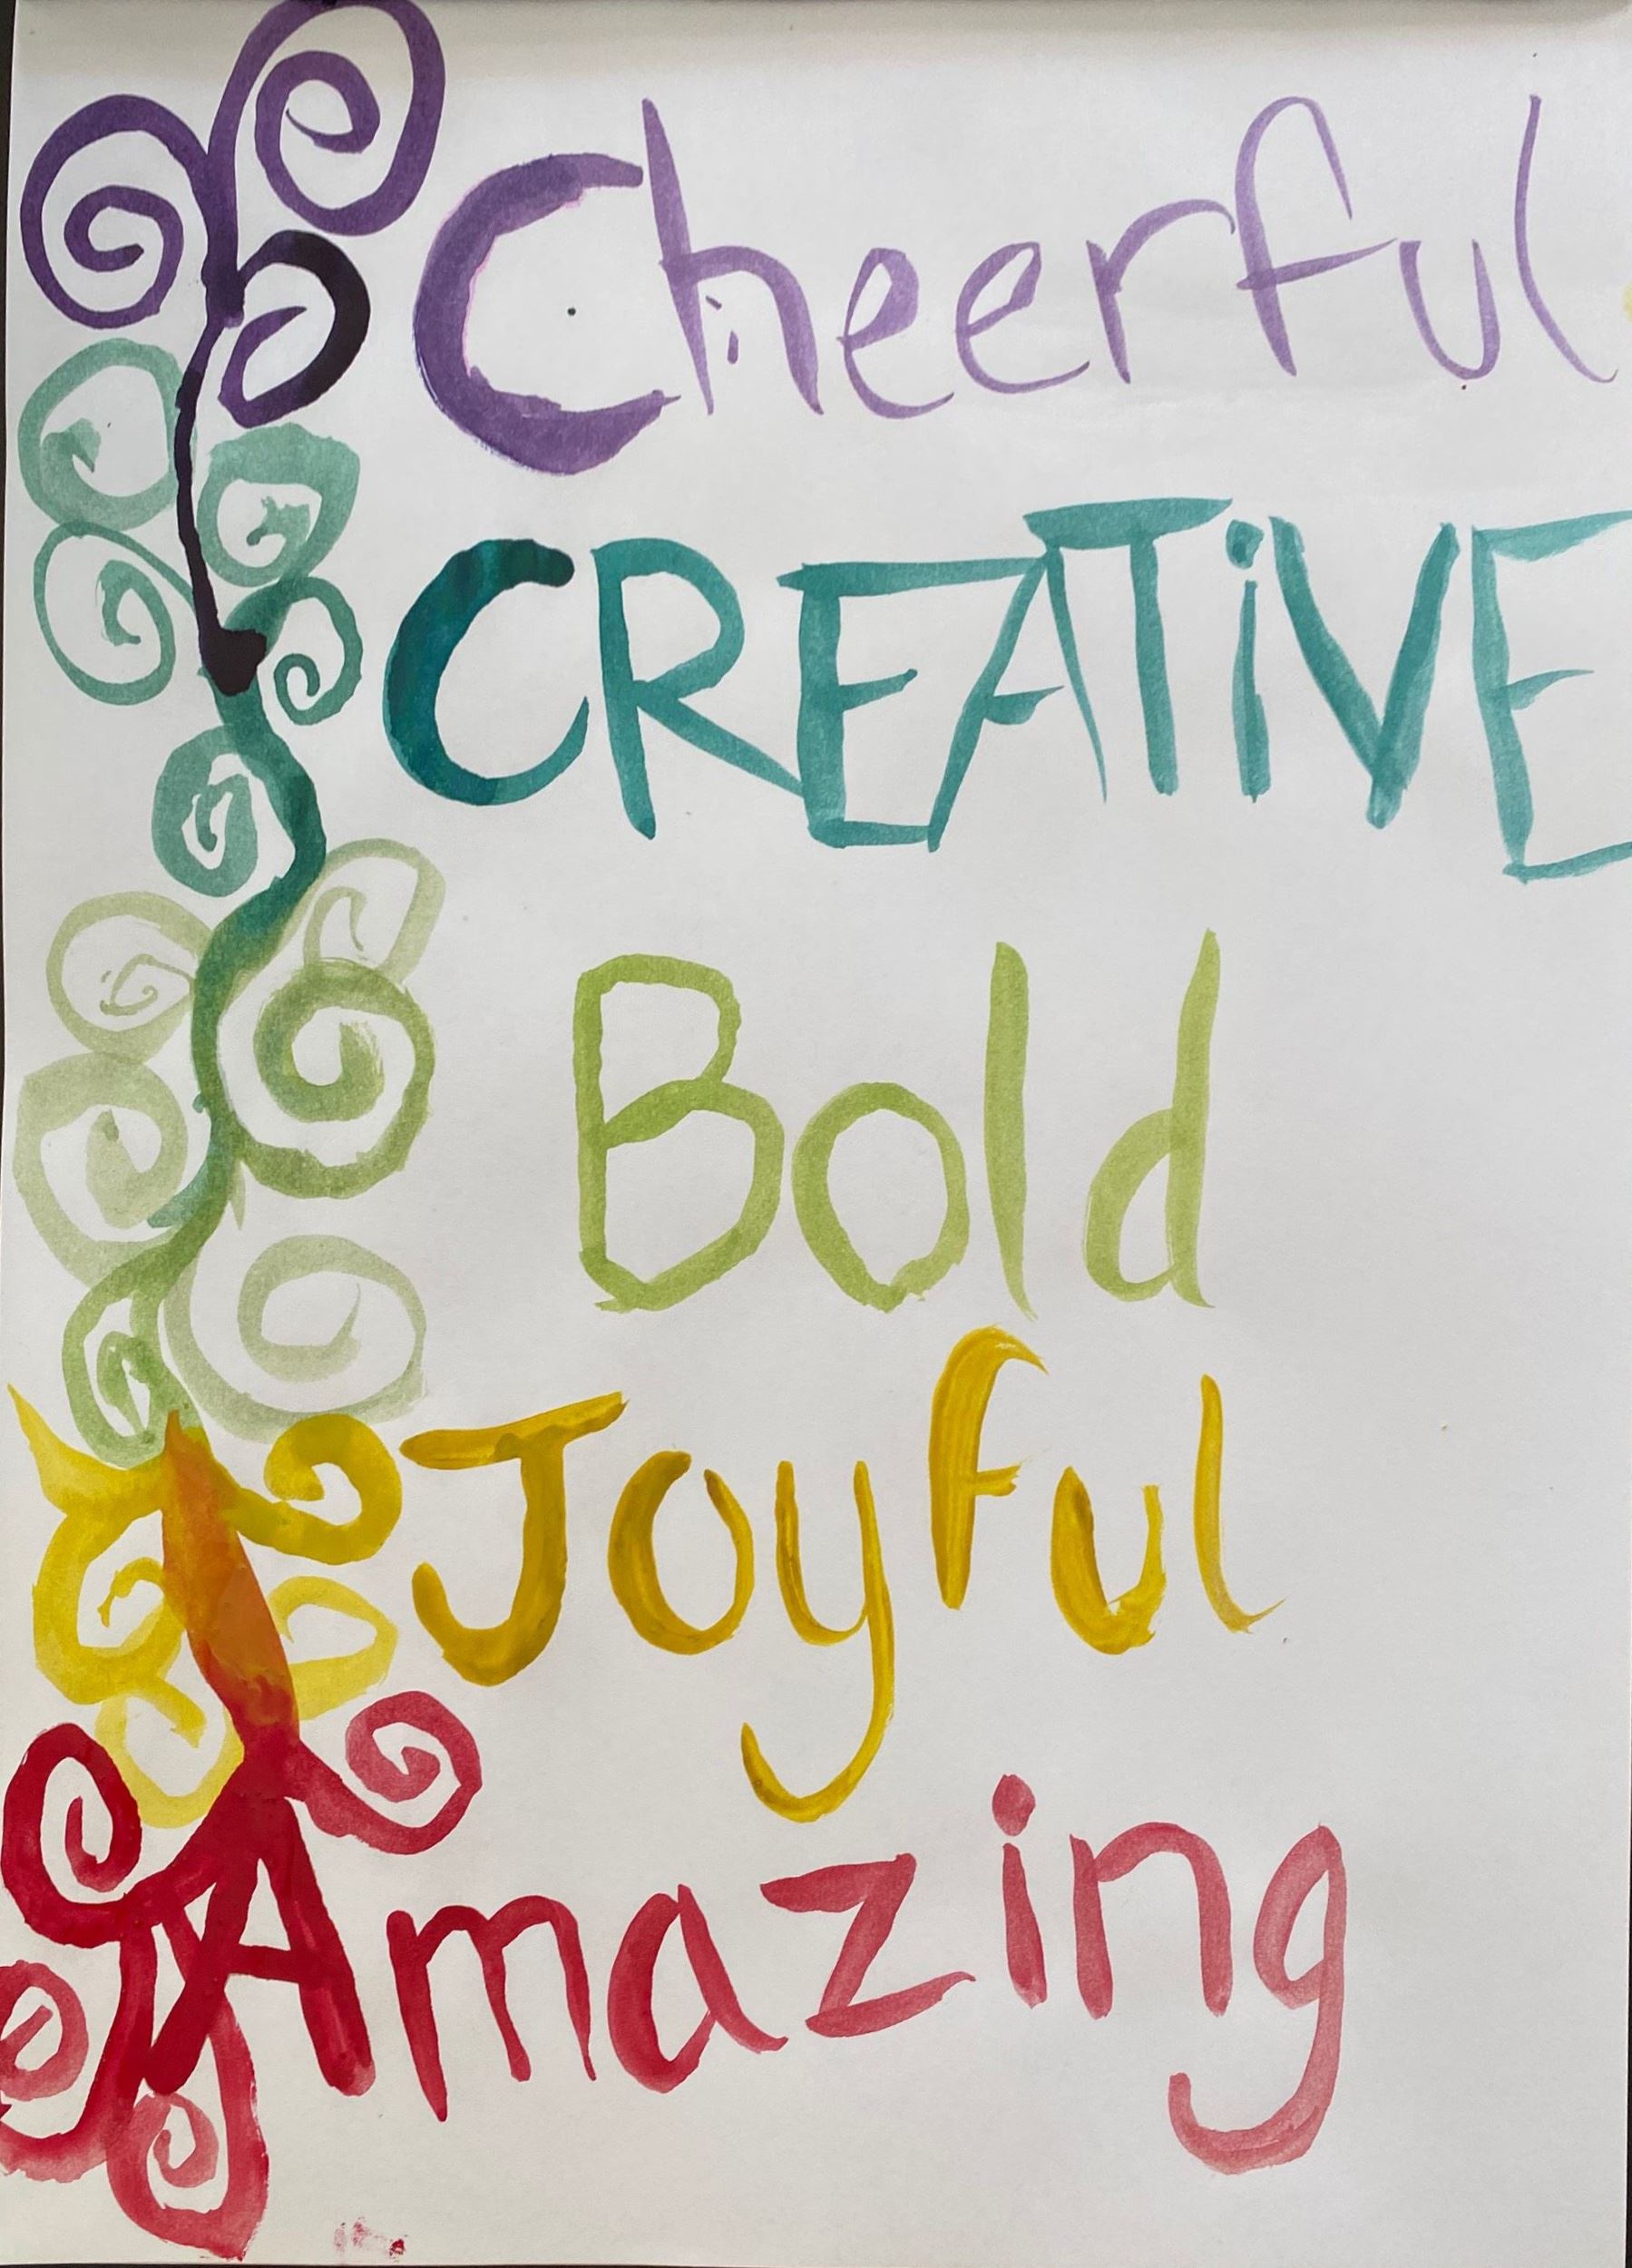 Cheerful
CREATiVE
Bold
Joyful
Amazing